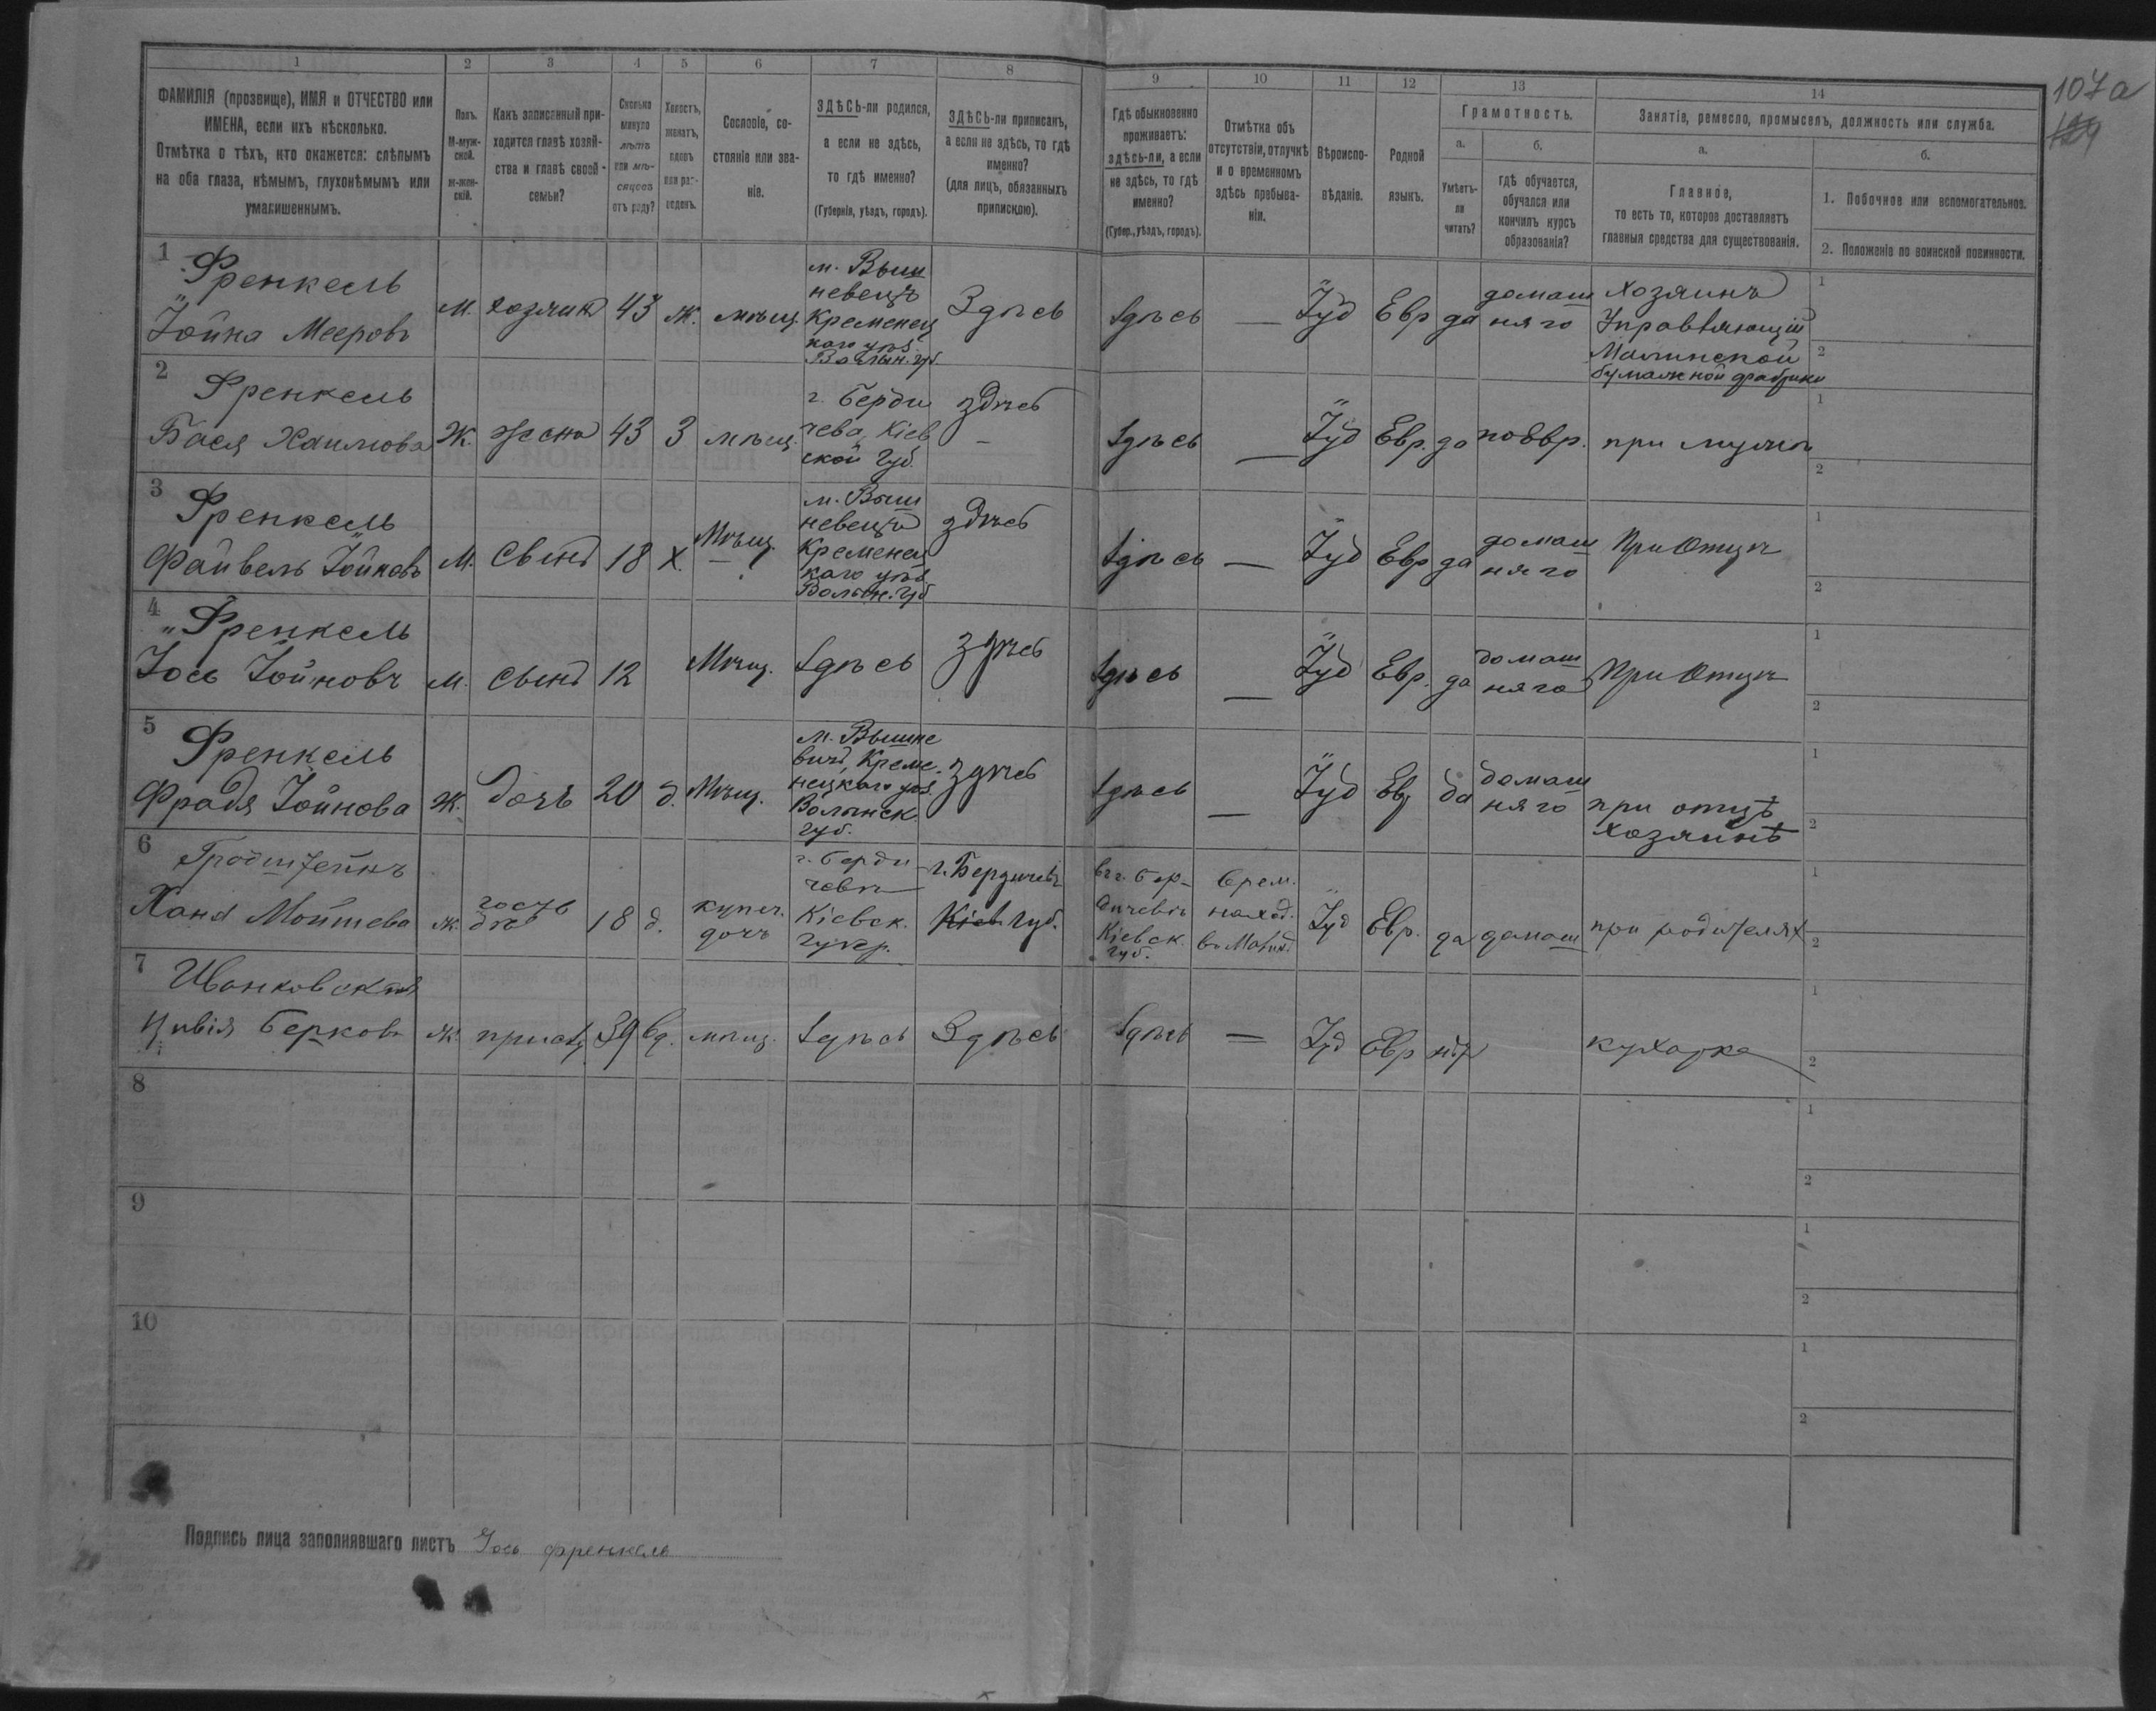 107а
1 2 3 4 5 6 7 8 9 10 11 12 13 14
ФАМИЛІЯ (прозвище), ИМЯ и ОТЧЕСТВО или
ИМЕНА, если ихъ нѣсколько.
Отмѣтка о тѣхъ, кто окажется: слѣпымъ
на оба глаза, нѣмымъ, глухонѣмымъ или
умалишеннымъ.
Полъ.
М-муж-
ской.
ж-жен-
скій.
Какъ записанный при-
ходится главѣ хозяй-
ства и главѣ своей
семьи?
Сколько
минуло
лѣтъ
или мѣ-
сяцевъ
отъ роду?
Холостъ,
женатъ,
вдовъ
или раз-
веденъ.
Сословіе, со-
стояніе или зва-
ніе.
ЗДѢСЬ-ли родился,
а если не здѣсь,
то гдѣ именно?
(Губернія, уѣздъ, городъ).
ЗДѢСЬ-ли приписанъ,
а если не здѣсь, то гдѣ
именно?
(для лицъ, обязанныхъ
припискою).
Гдѣ обыкновенно
проживаетъ:
здѣсь-ли, а если
не здѣсь, то гдѣ
именно?
(Губер., уѣздъ, городъ).
Отмѣтка объ
отсутствіи, отлучкѣ
и о временномъ
здѣсь пребыва-
ніи.
Вѣроиспо-
вѣданіе.
Родной
языкъ.
Грамотность.
а.
Умѣетъ-
ли
читать?
б.
гдѣ обучается,
обучался или
кончилъ курсъ
образованія?
Занятіе, ремесло, промыселъ, должность или служба.
а.
Главное,
то есть то, которое доставляетъ
главныя средства для существованія.
б.
1. Побочное или вспомогательное.
2. Положеніе по воинской повинности.
1
Френкель
Іойна Мееровъ
М.
хозяинъ
43
ж.
мѣщ.
м. Выш
невецъ
Кременец
каго уѣз.
Волын. губ.
Здѣсь
Здѣсь
—
Іуд
Евр
да
домаш
няго
Хозяинъ
Управляющій
Малинской
бумажной фабрики
1
2
2
Френкель
Бася Хаимова
Ж.
жена
43
З
мѣщ.
г. Берди
чева, Кіев
ской Губ.
здѣсь
—
Здѣсь
—
Іуд
Евр.
да
по Евр.
при мужѣ
1
2
3
Френкель
Файвель Іойновъ
М.
Сынъ
18
х.
Мѣщ.
м. Выш
невецъ
Кременец
каго уѣз.
Волын. губ
здѣсь
Здѣсь
—
Іуд
Евр
да
домаш
няго
При Отцѣ
1
2
4
Френкель
Іось Іойновъ
м.
Сынъ
12
Мѣщ.
Здѣсь
здѣсь
Здѣсь
—
Іуд
Евр.
да
домаш
няго
При Отцѣ
1
2
5
Френкель
Фрадя Іойнова
ж.
дочь
20
д.
Мѣщ.
м. Вышне
вицъ, Креме
нецкаго уѣз.
Волынск
губ.
здѣсь
Здѣсь
—
Іуд
Евр
да
домаш
няго
при отцѣ
хозяинѣ
1
2
6
Гродштейнъ
Хана Мойшева
ж.
гость
18
д.
купеч.
дочь
г. Берди
чевъ
Кіевск.
губер.
г. Бердичевъ
Кіев. Губ.
въ г. Бер-
дичевѣ
Кіевск.
губ.
Врем.
наход.
въ Малинѣ
Іуд
Евр.
да
домаш
при родителях
1
2
7
Иванковская
Цивія Беркова
ж.
прислуг
39
вд.
мѣщ.
Здѣсь
Здѣсь
Здѣсь
—
Іуд
Евр
нѣт
кухарка
1
2
8
1
2
9
1
2
10
1
2
Подпись лица заполнявшаго листъ Іось Френкель